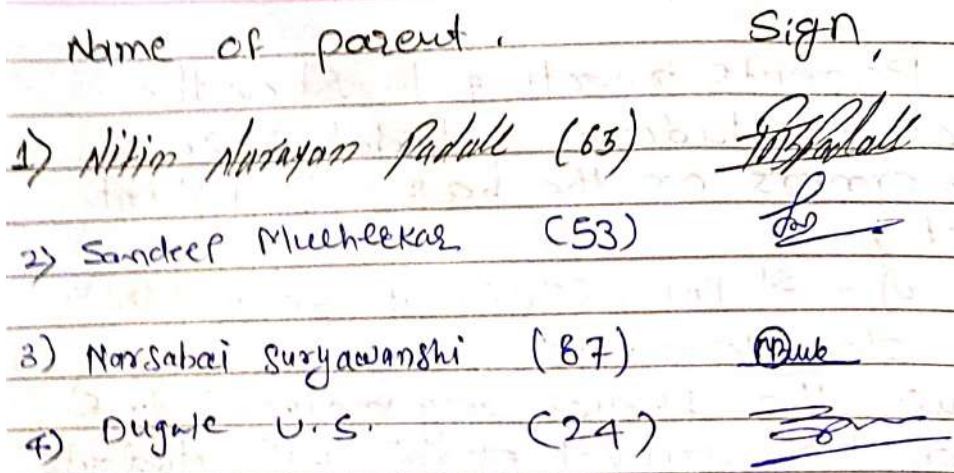 Name of parent. Sign,
1) Nitin Narayan Padall (63)
2) Sandeep Mucheekar (53)
3) Narsabai Suryawanshi (87)
4) Dugale U.S. (24)